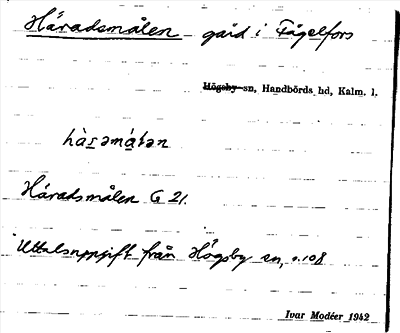 Häradsmålen gård i Fågelfors
Högsby sn, Handbörds hd, Kalm. l.
hàr̠əmá̠lən
Häradsmålen G 21.
Uttalsuppgift från Högsby sn, s. 108
Ivar Modéer 1942